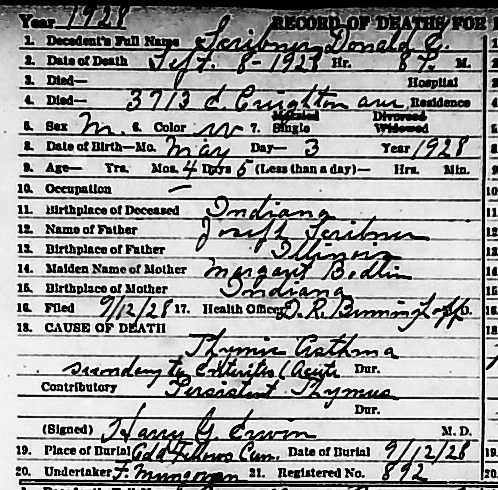 Year 1928 RECORD OF DEATHS FOR
1. Decedent's Full Name Scribner Donald E.
2. Date of Death Sept. 8 - 1928 Hr. M.
3. Died— Hospital
4. Died— 3713 Creighton ave Residence
5. Sex M. 6. Color w 7. Married Single Divorced Widowed
8. Date of Birth—Mo. May Day— 3 Year 1928
9. Age— Yrs. Mos. 4 Days 5 (Less than a day)— Hrs. Min.
10. Occupation —
11. Birthplace of Deceased Indiana
12. Name of Father Joseph Scribner
13. Birthplace of Father Illinois
14. Maiden Name of Mother Margaret Bedlin
15. Birthplace of Mother Indiana
16. Filed 9/12/28 17. Health Officer D. R. Benninghoff
18. CAUSE OF DEATH
Thymic Asthma
secondary to Enteritis (Acute Dur.
Contributory Persistent Thymus
Dur.
(Signed) Harry G. Erwin M. D.
19. Place of Burial Odd Fellows Cem. Date of Burial 9/12/28
20. Undertaker F. Mungovan 21. Registered No. 892